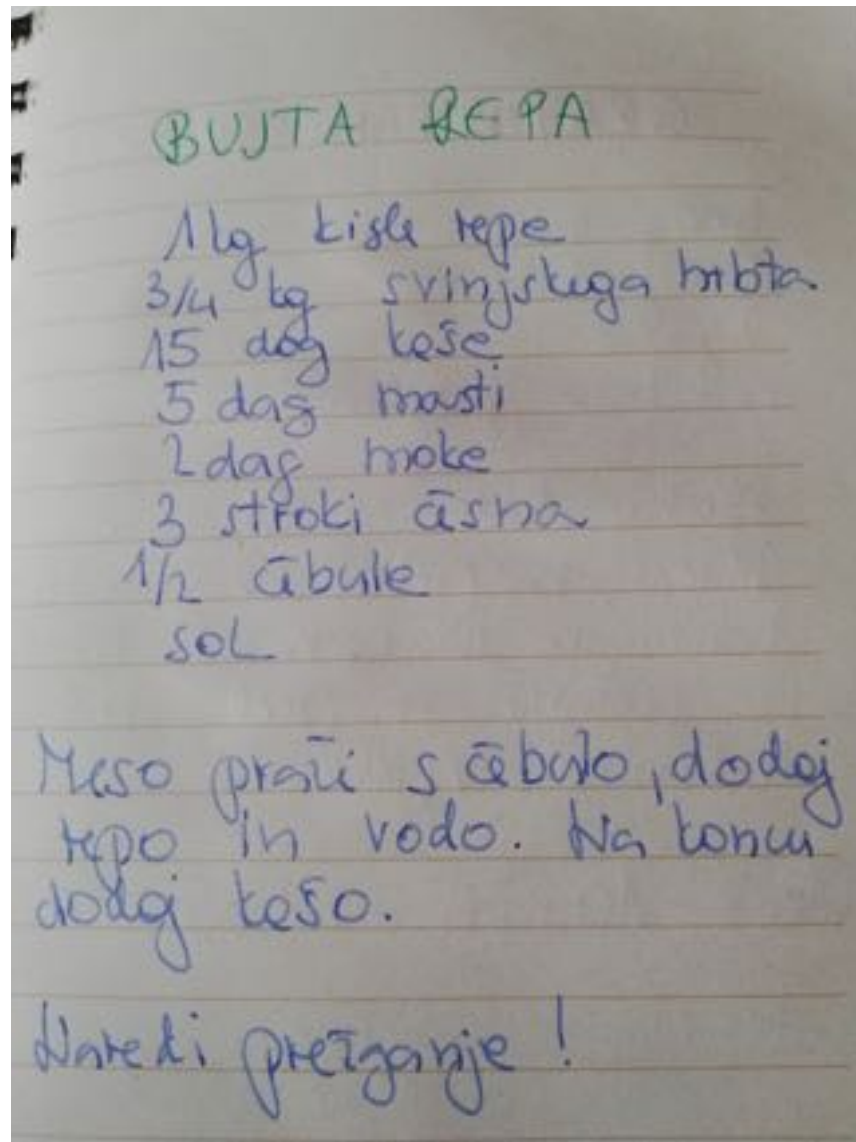 BUJTA REPA
1 kg kisle repe
3/4 kg svinjskega hrbta
15 dag kaše
5 dag masti
2 dag moke
3 stroki česna
1/2 čebule
SOL
Meso praži s čebulo, dodaj
repo in vodo. Na koncu
dodaj kašo.
Naredi prežganje!